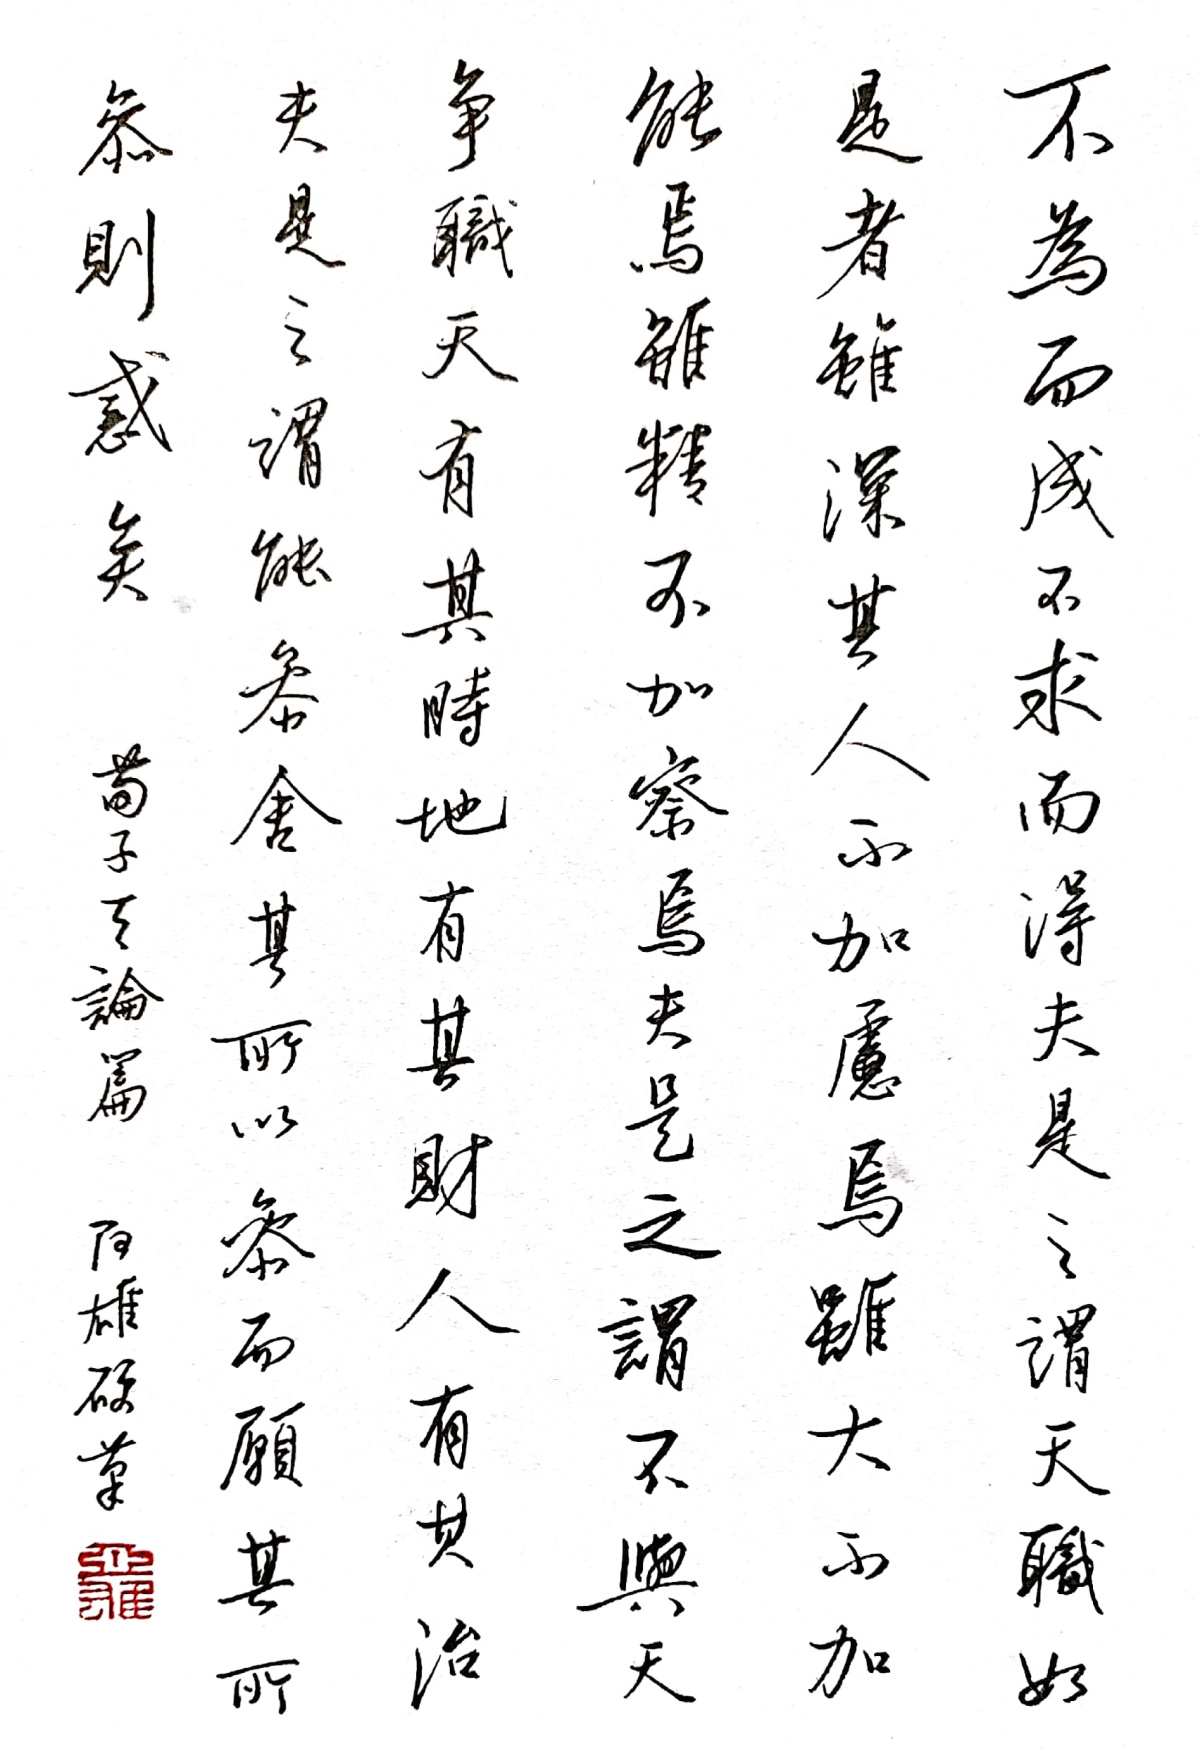 不為而成不求而得夫是之謂天職如
是者雖深其人不加慮焉雖大不加
能焉雖精不加察焉夫是之謂不與天
爭職天有其時地有其財人有其治
夫是之謂能參舍其所以參而願其所
參則惑矣
荀子天論篇
阿雄硬筆